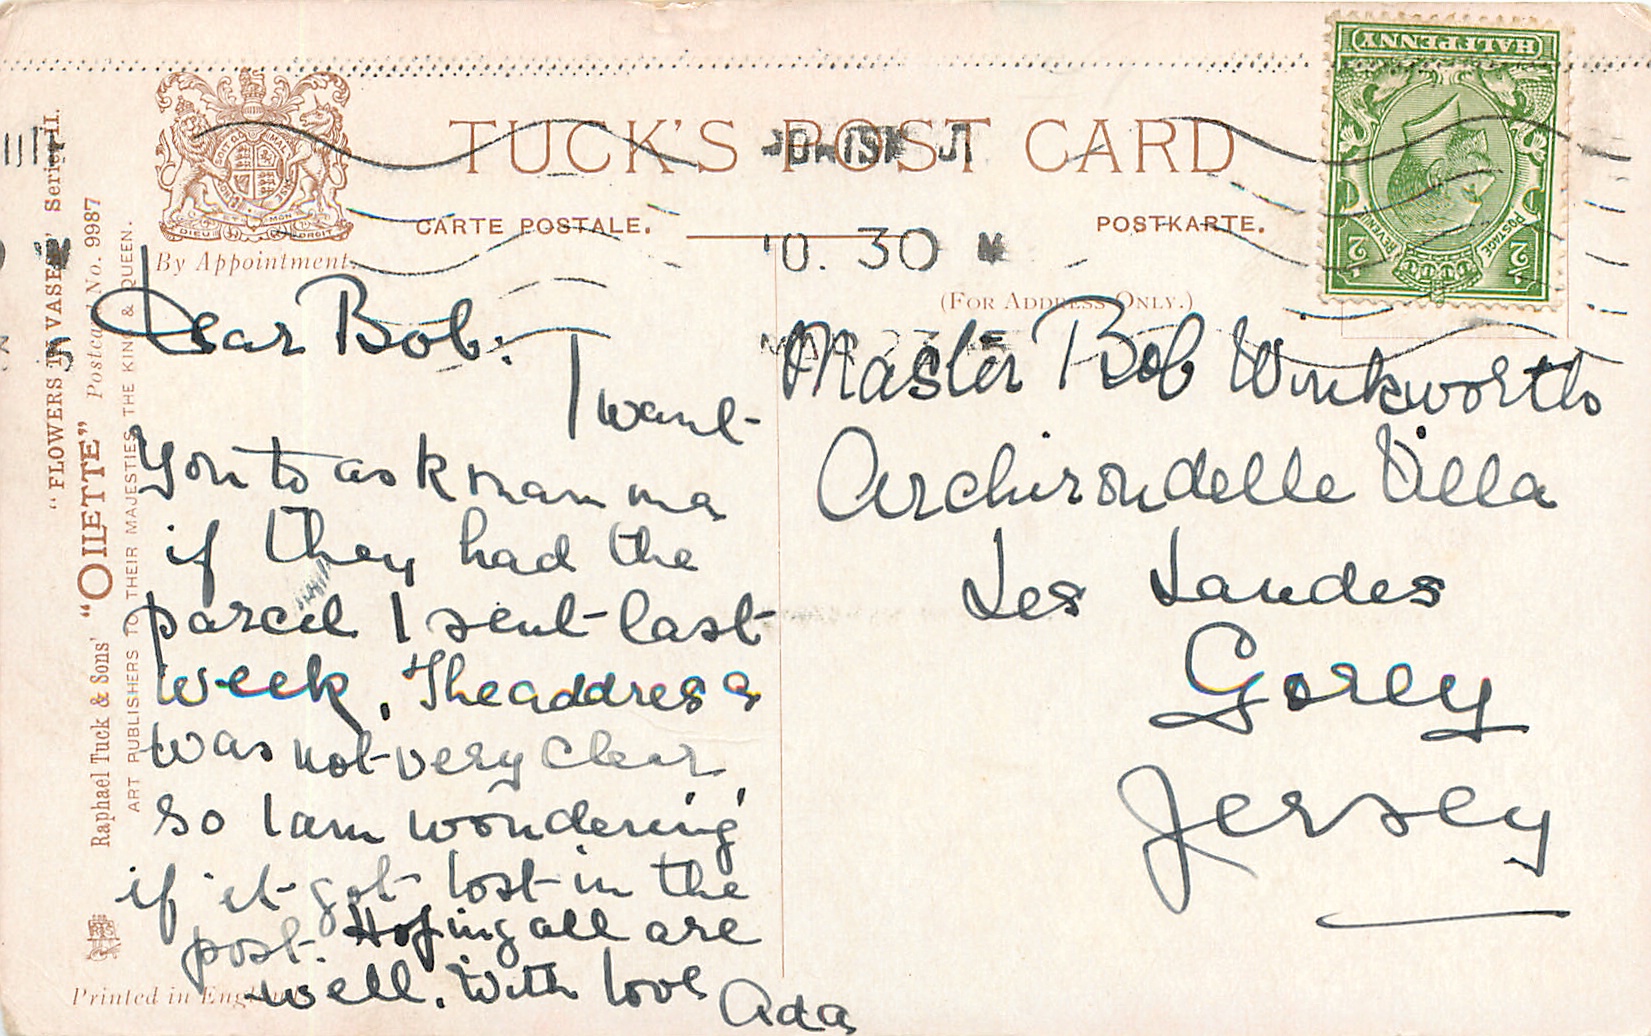 TUCK'S POST CARD
CARTE POSTALE.
POSTKARTE.
By Appointment.
(FOR ADDRESS ONLY.)
HALFPENNY
POSTAGE
REVENUE
½
½
DIEU ET MON DROIT
10. 30
"FLOWERS IN VASES" Series II.
Raphael Tuck & Sons' "OILETTE" Postcard No. 9987
ART PUBLISHERS TO THEIR MAJESTIES THE KING & QUEEN.
Printed in England
Dear Bob:
I want
you to ask mamma
if they had the
parcel I sent last
week. The address
was not very clear
so I am wondering
if it got lost in the
post. Hoping all are
well. With love Ada
Master Bob Winkworth
Archirondelle Villa
Les Landes
Gorey
Jersey